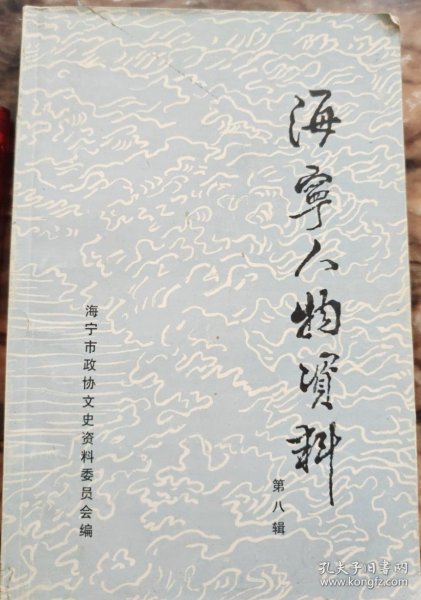 海寧人物資料
第八辑
海宁市政协文史资料委员会编
孔夫子旧书网
www.kongfz.com